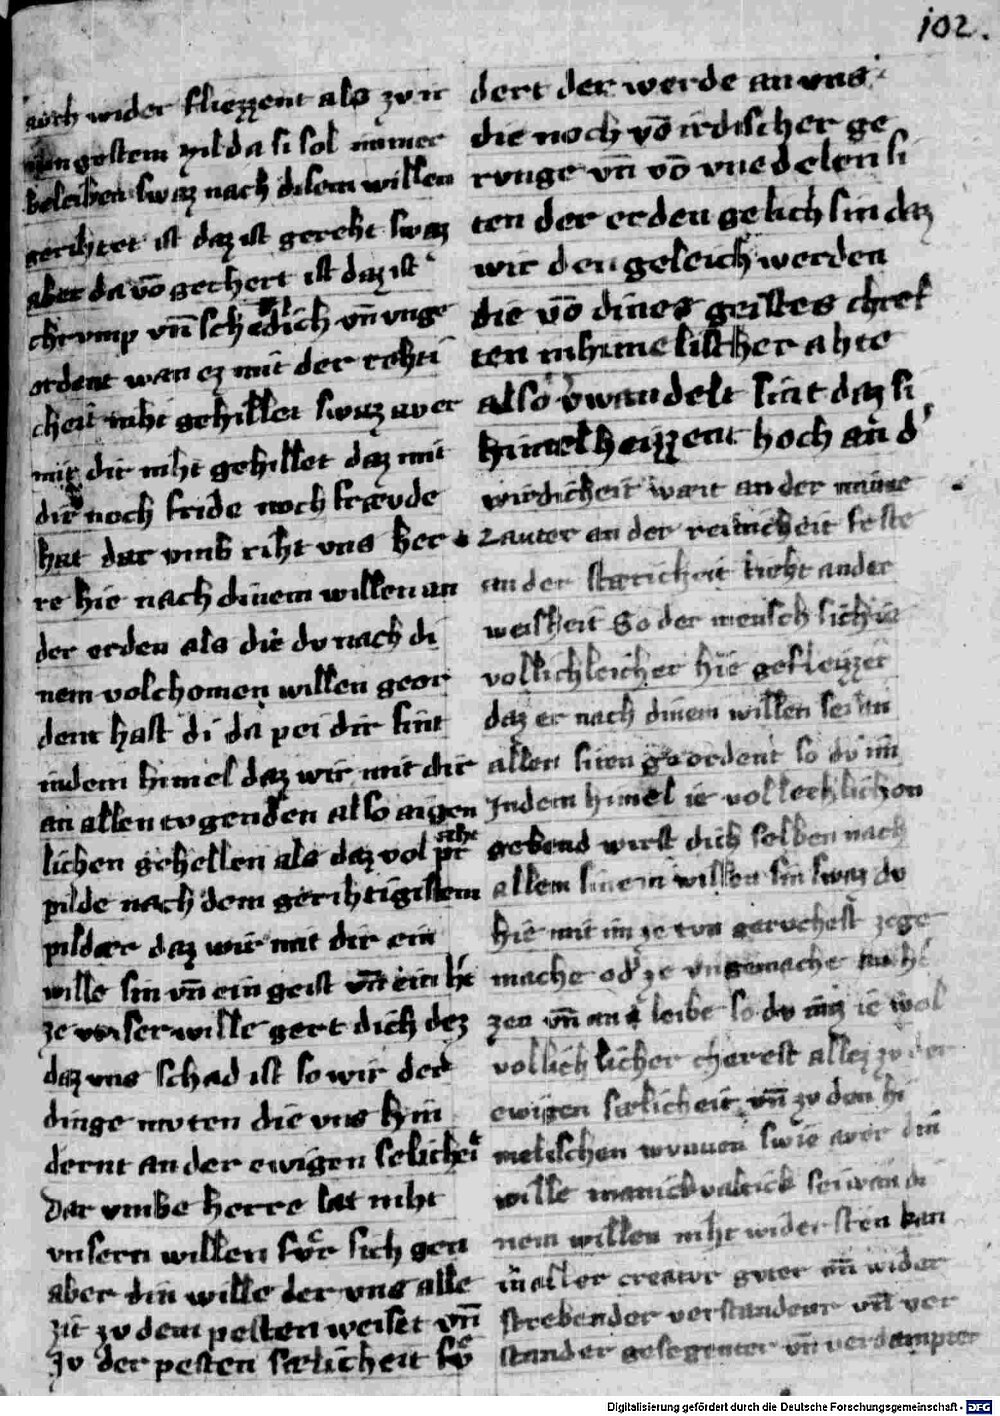 102.
auch wider fliezzent als zv ir
iungostem zil da si sol immer
beleiben swaz nach disem willen
gerihtet ist daz ist gereht swaz
aber da vō gechert ist daz ist
chrvmp vn̄ schedlich vn̄ vnge
ordent wan ez mit der rehti
cheit niht gehillet swaz aver
mit dir niht gehillet daz mit
dir noch fride noch frævde
hat dar vmb riht vns her
re hie nach dinem willen an
der erden als die dv nach di
nem volchomen willen geor
dent hast di da pei dir sint
indem himel daz wir mit dir
an allen tvgenden also aigen
lichen gehellen als daz vol pr
pilde nach dem gerihtigistem
pildær daz wir mit dir ein
wille sin vn̄ ein geist vn̄ ein h
ze vnser wille gert dich dez
daz vns schad ist so wir der
dinge mvten die vns hin
dernt an der ewigen selichei
Dar vmbe herre lat niht
vnsern willen fvr sich gen
aber din wille der vns alle
zit zv dem pesten weiset vn̄
zv der pesten sælicheit fv
dert der werde an vns
die noch vō irdischer ge
rvnge vn̄ vō vnedelen si
ten der erden gelich sin daz
wir den geleich werden
die vō dines geistes chref
ten inhimelischer ahte
also v̓wandelt sint daz si
himel heizzent hoch an d̓
wirdicheit wait an der minne
Lauter an der reinicheit feste
an der stæricheit lieht an der
weisheit So der mensch sich ie
vollichleicher hie gefleizzet
daz er nach dinem willen sei an
allen siten geordent so dv im
Indem himel ie vollechlichon
gebend wirst dich selben nach
allem sinem willen sin swaz dv
hie mit im ze tvn gervchest zege
mache od̓ ze vngemache an h
zen vn̄ an leibe so dv inz ie wol
vollichlicher cherest allez zv der
ewigen sælicheit vn̄ zv den hi
melischen wvnnen swie aver din
wille manickvaltick sei wan di
nem willen niht widersten kan
in aller creatvr gvter vn̄ wider
strebender verstandenr vn̄ ver
stander gesegenter vn̄ verdampter
Digitalisierung gefördert durch die Deutsche Forschungsgemeinschaft - DFG